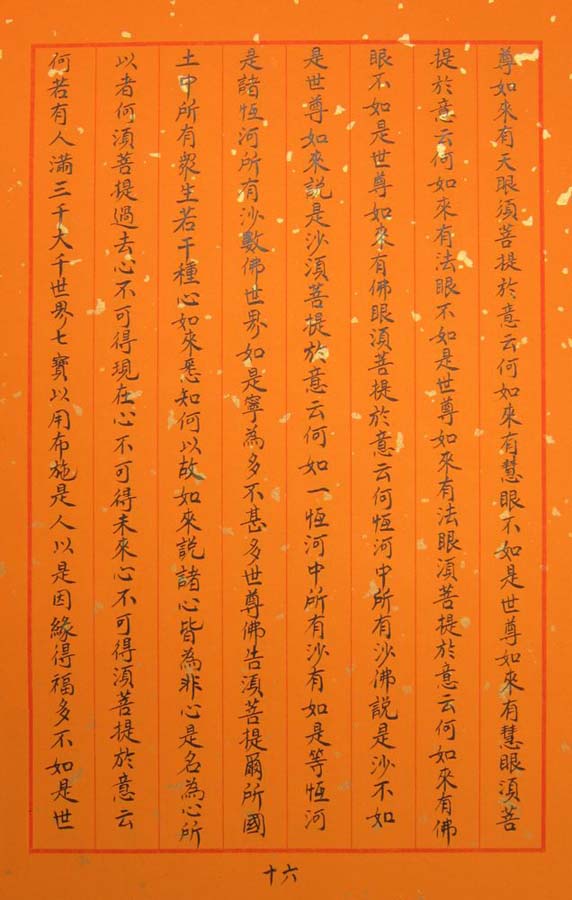 尊如來有天眼須菩提於意云何如來有慧眼不如是世尊如來有慧眼須菩
提於意云何如來有法眼不如是世尊如來有法眼須菩提於意云何如來有佛
眼不如是世尊如來有佛眼須菩提於意云何恆河中所有沙佛說是沙不如
是世尊如來說是沙須菩提於意云何如一恆河中所有沙有如是等恆河
是諸恆河所有沙數佛世界如是寧為多不甚多世尊佛告須菩提爾所國
土中所有眾生若干種心如來悉知何以故如來說諸心皆為非心是名為心所
以者何須菩提過去心不可得現在心不可得未來心不可得須菩提於意云
何若有人滿三千大千世界七寶以用布施是人以是因緣得福多不如是世
十六